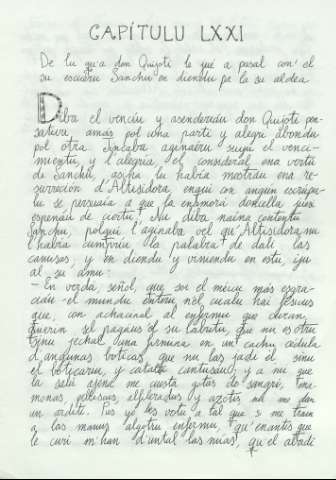 CAPÍTULU LXXI
De lu qu'a don Quijoti le que a pasal con el
su escueru Sanchu en diendu pa la su aldea
Diba el venciu y asendereáu don Quijoti pen-
sativu amás pol una parti y alegri abondu
pol otra. Incaba aginaeru suyu el venci-
mientu, y l'alegria, el consideral ena vertú
de Sanchu, asina lu había mostráu ena re-
surreción d'Altisidora, enque con angun escrúpu-
lu se persuaía a que la enamorá doncella juea
espenaíu de ciertu. Nu diba naina contentu
Sanchu, polque l'aginaba vel qu'Altisidora nu
l'había cumpríu la palabra de dali las
camisas, y en diendu y viniendu en estu, iju
al su amu:
— En verdá, señol, que soi el méicu más esgra-
ciáu el mundu enteru nel cualu hai jísicus
que, con achacual al enfermu que curan,
querin sel pagáus de su labutu, que nu es otru
sinu jechal una firmina en un cachu cédula
d'angunas boticas, que nu las jadi él sinu
el boticariu, y catalo cantusáu; y a mí que
la salú ajena me cuesta gotas de sangri,
monas, pelliscus, alfileradus y azotis nu me dan
un arditi. Pus yo les votu a tal que si me train
a las manus algotru enfermu, qu'enantis que
le curi m'han d'untal las mías, qu'el abadi